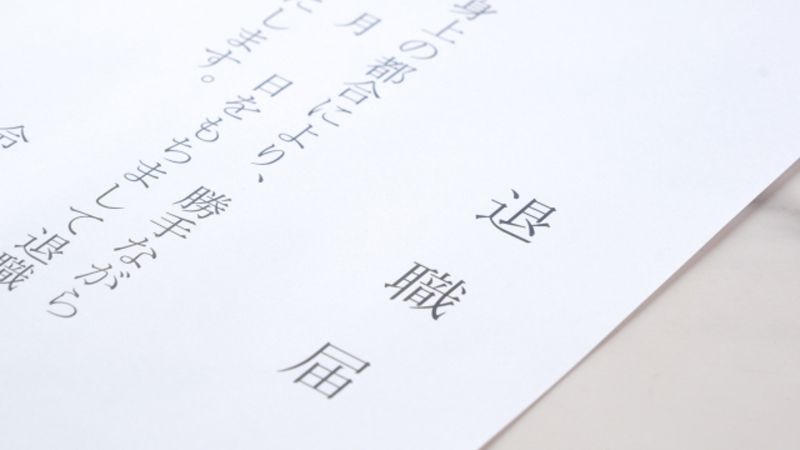 退職届
身上の都合により、勝手ながら
月 日をもちまして退職
します。
令